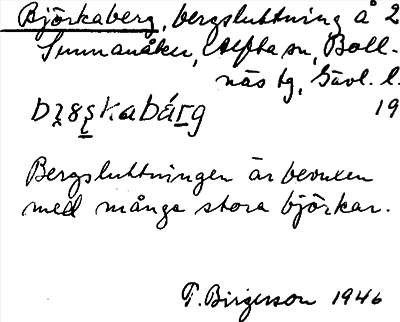 Björkaberg, bergsluttning å 2
Sunnanåker, Alfta sn, Boll-
näs tg, Gävl. l.
19
Bergsluttningen är bevuxen
med många stora björkar.
T. Birgerson 1946